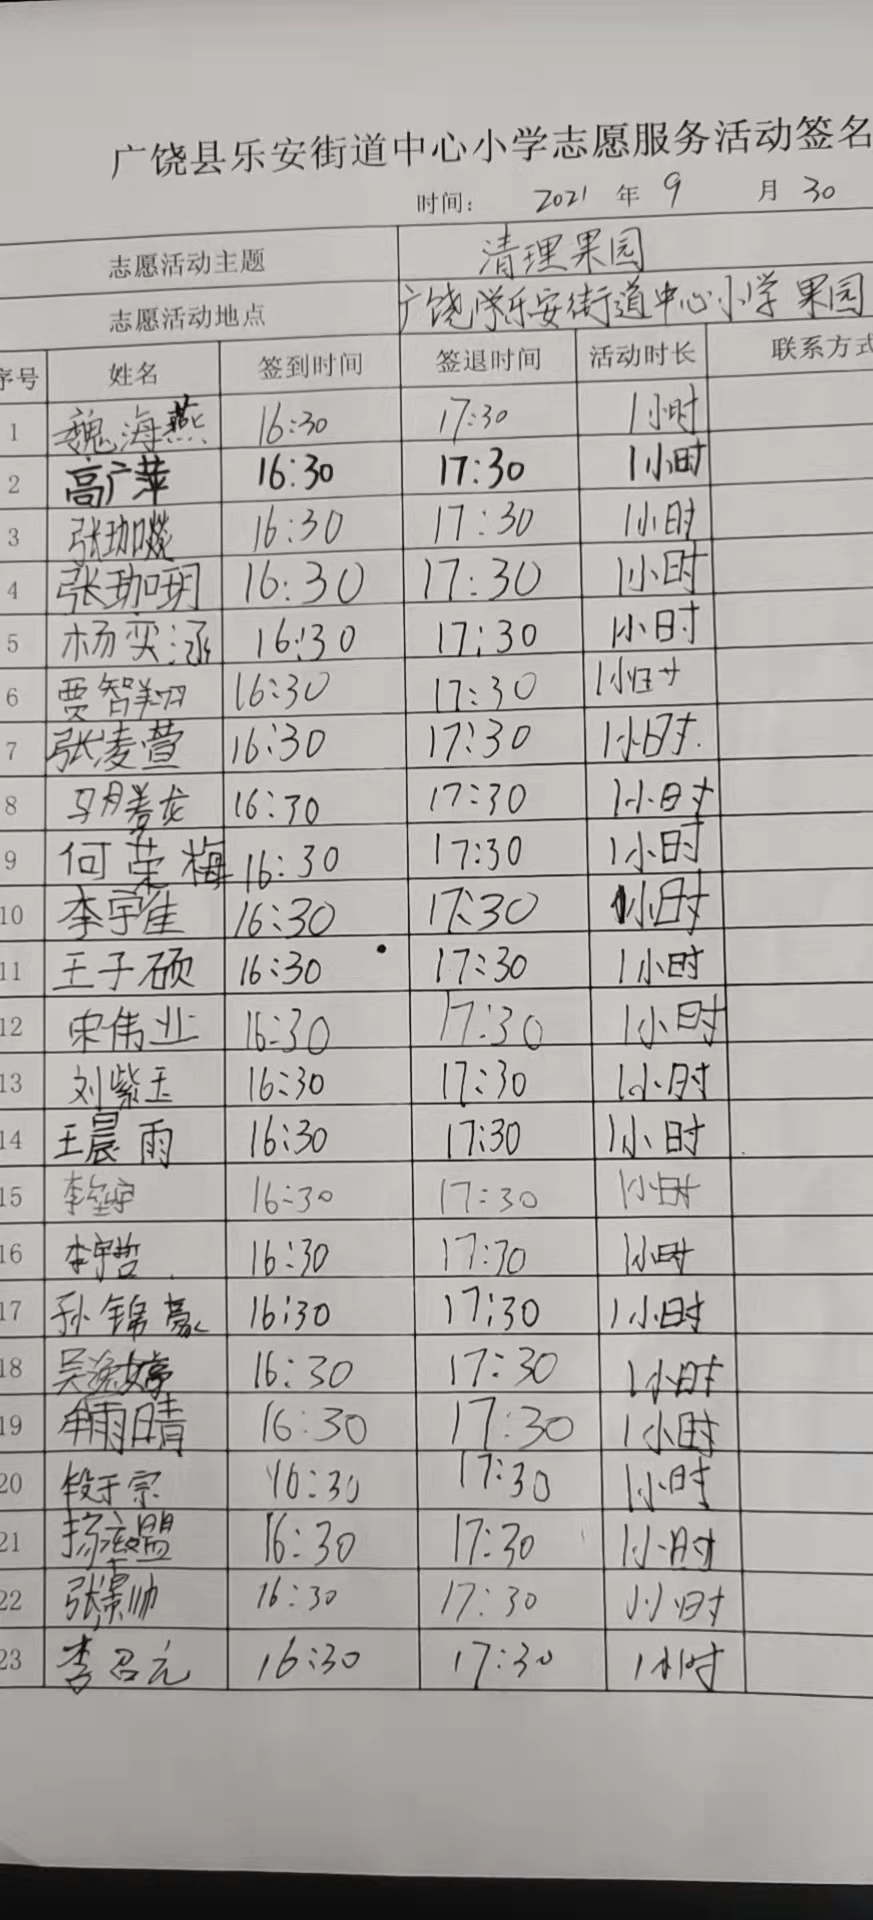 广饶县乐安街道中心小学志愿服务活动签名
时间： 2021 年 9 月 30
志愿活动主题 清理果园
志愿活动地点 广饶 乐安街道中心小学果园
序号 姓名 签到时间 签退时间 活动时长 联系方式
1 魏海燕 16:30 17:30 1小时
2 高广苹 16:30 17:30 1小时
3 张珈 16:30 17:30 1小时
4 张珈玥 16:30 17:30 1小时
5 杨奕涵 16:30 17:30 1小时
6 贾智翔 16:30 17:30 1小时
7 张凌萱 16:30 17:30 1小时
8 马 龙 16:30 17:30 1小时
9 何荣梅 16:30 17:30 1小时
10 李宇佳 16:30 17:30 1小时
11 王子硕 16:30 17:30 1小时
12 宋伟业 16:30 17:30 1小时
13 刘紫玉 16:30 17:30 1小时
14 王晨雨 16:30 17:30 1小时
15 李 宇 16:30 17:30 1小时
16 李宇哲 16:30 17:30 1小时
17 孙锦豪 16:30 17:30 1小时
18 吴 婷 16:30 17:30 1小时
19 雨晴 16:30 17:30 1小时
20 段于宗 16:30 17:30 1小时
21 盟 16:30 17:30 1小时
22 张景帅 16:30 17:30 1小时
23 李召元 16:30 17:30 1小时